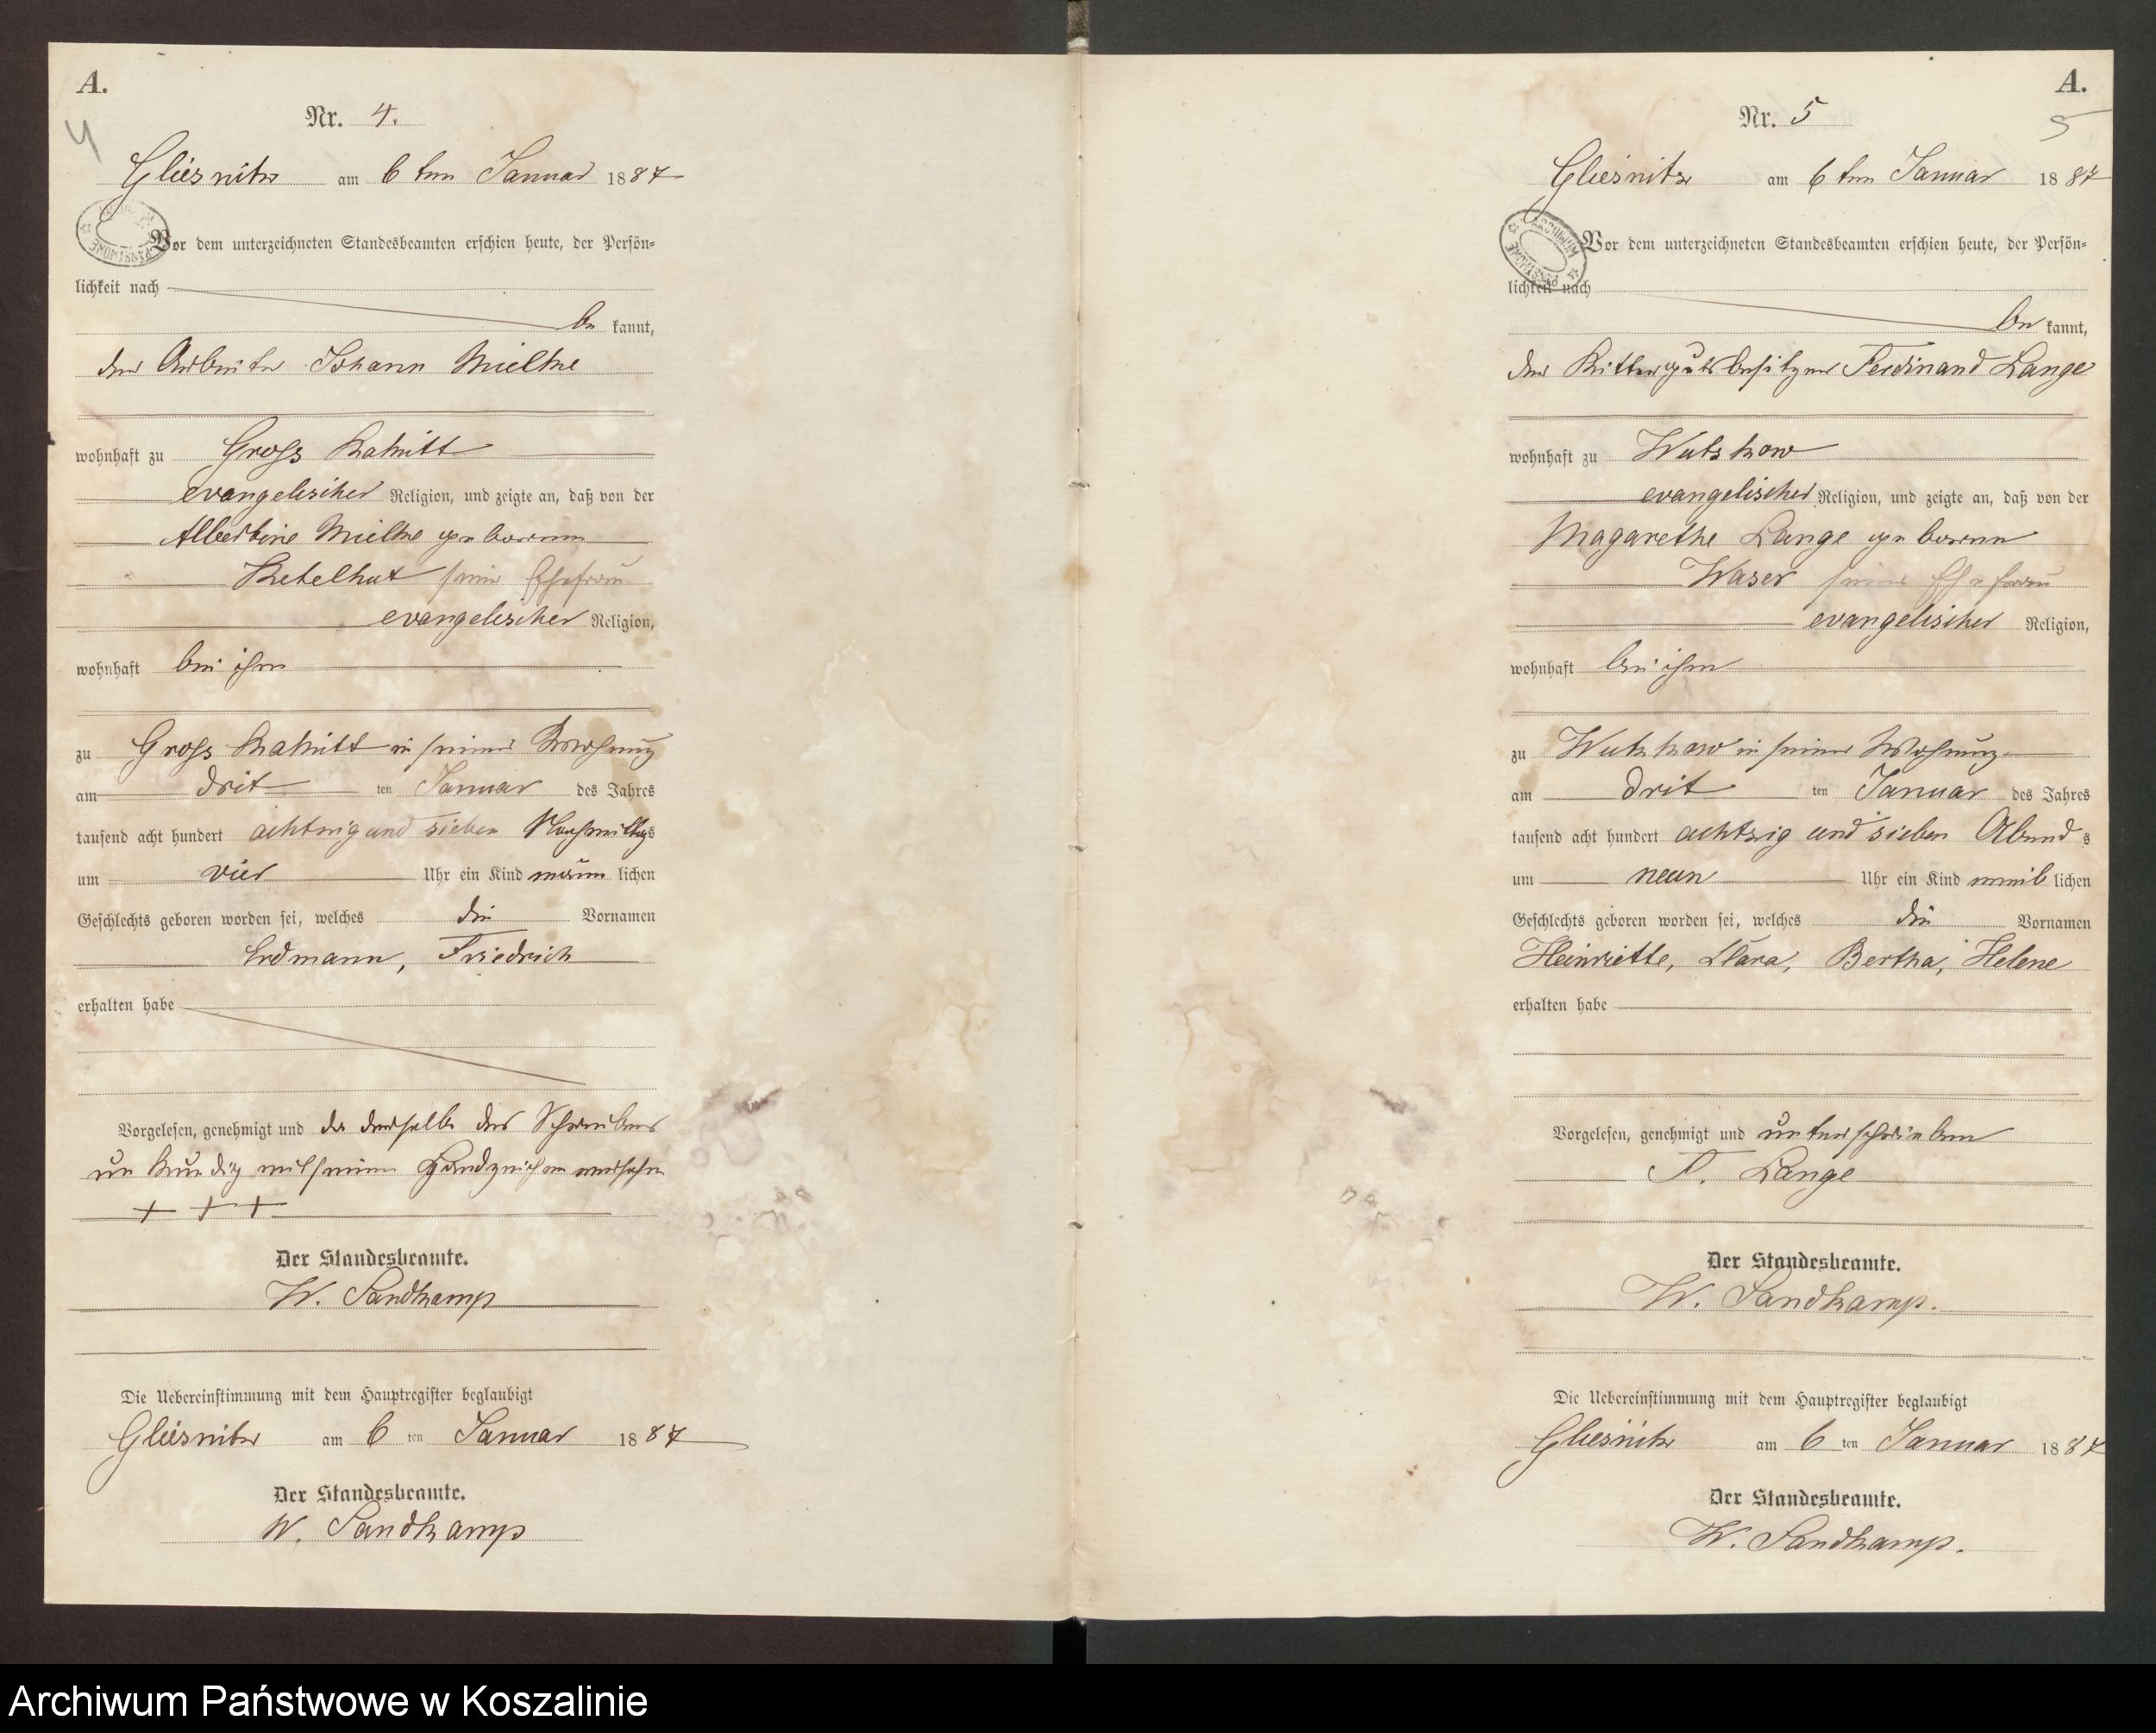 A.
Nr. 4.
4
Gliesnitz am 6ten Januar 1887
Vor dem unterzeichneten Standesbeamten erschien heute, der Persön-
lichkeit nach
be kannt,
der Arbeiter Johann Mielke
wohnhaft zu Gross Rakitt
evangelischer Religion, und zeigte an, daß von der
Albertine Mielke geborenen
Ketelhut seiner Ehefrau
evangelischer Religion,
wohnhaft bei ihm
zu Gross Rakitt in seiner Wohnung
am drit ten Januar des Jahres
tausend acht hundert achtzig und sieben Nachmittags
um vier Uhr ein Kind männ lichen
Geschlechts geboren worden sei, welches die Vornamen
Erdmann, Friedrich
erhalten habe
Vorgelesen, genehmigt und da derselbe des Schreibens
unkundig mit seinem Handzeichen versehen
+ + +
Der Standesbeamte.
W. Sandkamp
Die Uebereinstimmung mit dem Hauptregister beglaubigt
Gliesnitz am 6 ten Januar 1887
Der Standesbeamte.
W. Sandkamp
A.
Nr. 5
5
Gliesnitz am 6ten Januar 1887
ARCHIWUM
Vor dem unterzeichneten Standesbeamten erschien heute, der Persön-
lichkeit nach
be kannt,
der Rittergutsbesitzer Ferdinand Lange
wohnhaft zu Wutzkow
evangelischer Religion, und zeigte an, daß von der
Magarethe Lange geborenen
Waser seiner Ehefrau
evangelischer Religion,
wohnhaft bei ihm
zu Wutzkow in seiner Wohnung
am drit ten Januar des Jahres
tausend acht hundert achtzig und sieben Abend s
um neun Uhr ein Kind weib lichen
Geschlechts geboren worden sei, welches die Vornamen
Heinriette, Clara, Bertha, Helene
erhalten habe
Vorgelesen, genehmigt und unterschrieben
F. Lange
Der Standesbeamte.
W. Sandkamp.
Die Uebereinstimmung mit dem Hauptregister beglaubigt
Gliesnitz am 6 ten Januar 1887
Der Standesbeamte.
W. Sandkamp.
Archiwum Państwowe w Koszalinie